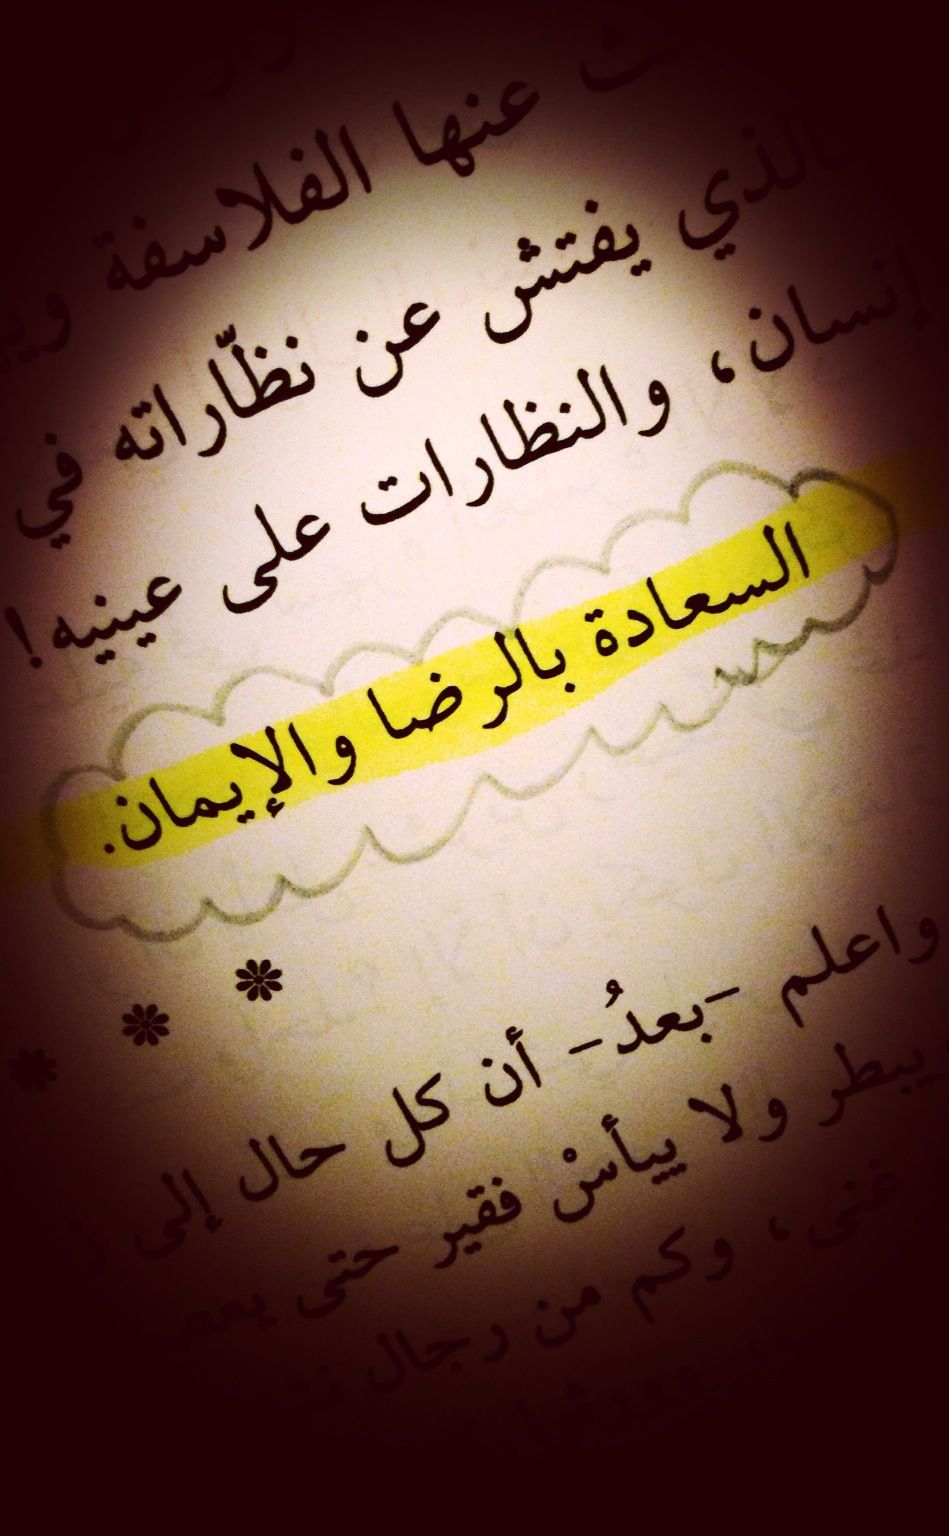 عنها الفلاسفة
يفتش عن نظّاراته في
إنسان، والنظارات على عينيه!
السعادة بالرضا والإيمان.
واعلم -بعدُ- أن كل حال إلى
يبطر ولا ييأسْ فقير حتى
غنى، وكم من رجال